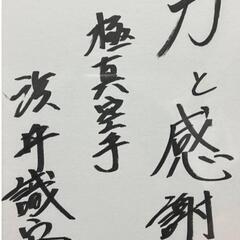 力と感謝
極真空手
浜井識安